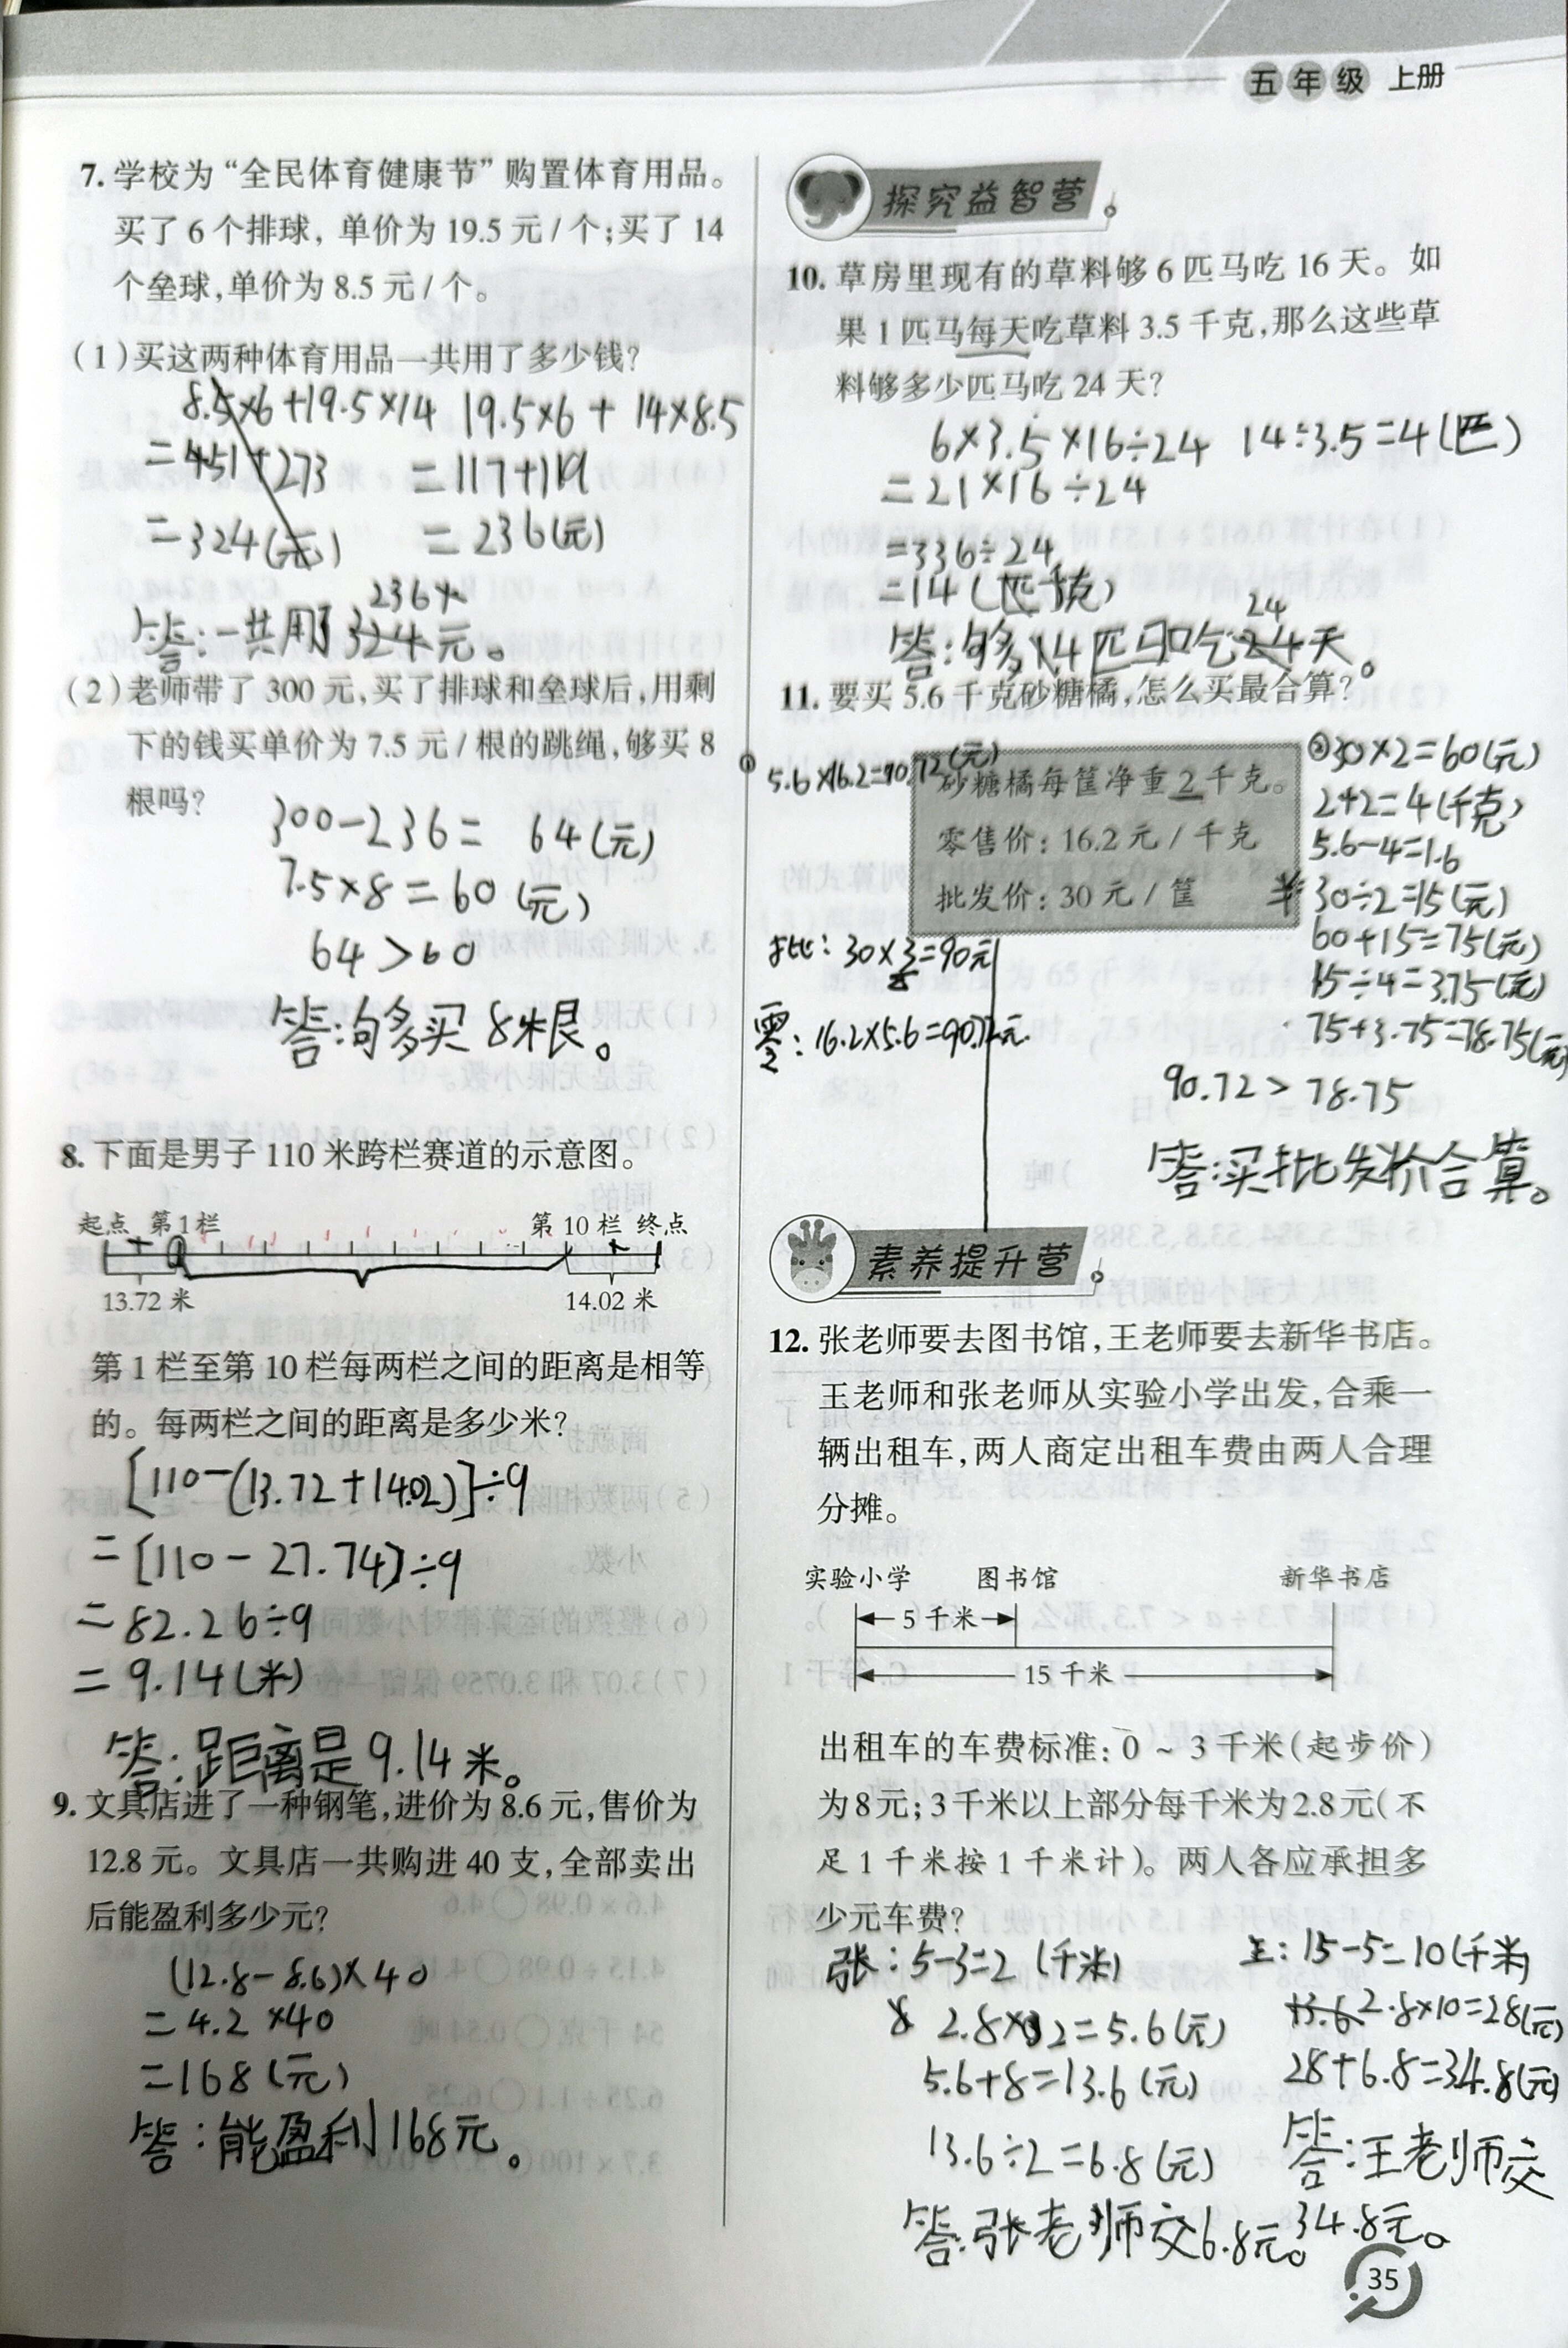 五年级 上册
7. 学校为“全民体育健康节”购置体育用品。
买了 6 个排球, 单价为 19.5 元 / 个;买了 14
个垒球,单价为 8.5 元 / 个。
(1)买这两种体育用品一共用了多少钱?
8.5×6+19.5×14 19.5×6+14×8.5
=451+273 =117+119
=324(元) =236(元)
236
答:一共用了324元。
(2)老师带了 300 元,买了排球和垒球后,用剩
下的钱买单价为 7.5 元 / 根的跳绳,够买 8
根吗?
300-236= 64(元)
7.5×8=60(元)
64>60
答:够买8根。
8. 下面是男子 110 米跨栏赛道的示意图。
起点 第1栏 第 10 栏 终点
13.72 米 14.02 米
第 1 栏至第 10 栏每两栏之间的距离是相等
的。每两栏之间的距离是多少米?
[110-(13.72+14.02)]÷9
=[110-27.74]÷9
=82.26÷9
=9.14(米)
答:距离是9.14米。
9. 文具店进了一种钢笔,进价为 8.6 元,售价为
12.8 元。文具店一共购进 40 支,全部卖出
后能盈利多少元?
(12.8-8.6)×40
=4.2×40
=168(元)
答:能盈利168元。
探究益智营
10. 草房里现有的草料够 6 匹马吃 16 天。如
果 1 匹马每天吃草料 3.5 千克,那么这些草
料够多少匹马吃 24 天?
6×3.5×16÷24 14÷3.5=4(匹)
=21×16÷24
=336÷24
=14(千克)
24
答:够4匹马吃24天。
11. 要买 5.6 千克砂糖橘,怎么买最合算?
① 5.6×16.2=90.72(元)
砂糖橘每筐净重 2 千克。
零售价: 16.2 元 / 千克
批发价: 30 元 / 筐
批: 30×3=90元
零: 16.2×5.6=90.72元
②30×2=60(元)
2+2=4(千克)
5.6-4=1.6
半 30÷2=15(元)
60+15=75(元)
15÷4=3.75(元)
75+3.75=78.75(元)
90.72>78.75
答:买批发价合算。
素养提升营
12. 张老师要去图书馆,王老师要去新华书店。
王老师和张老师从实验小学出发,合乘一
辆出租车,两人商定出租车费由两人合理
分摊。
实验小学 图书馆 新华书店
5 千米
15 千米
出租车的车费标准: 0 ~ 3 千米(起步价)
为8元; 3千米以上部分每千米为2.8元(不
足 1 千米按 1 千米计)。两人各应承担多
少元车费?
张: 5-3=2 (千米)
8 2.8×2=5.6(元)
5.6+8=13.6(元)
13.6÷2=6.8(元)
答:张老师交6.8元。
王: 15-5=10(千米)
13.6 2.8×10=28(元)
28+6.8=34.8(元)
答:王老师交
34.8元。
35